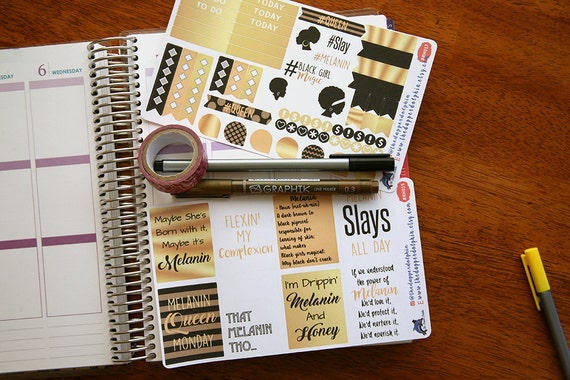 TODAY
TODAY
TODAY
TO DO
#QUEEN
#Slay
#MELANIN
#BLACK GIRL
Magic
#QUEEN
SISTS SISTS
@thedapperdolphin
www.thedapperdolphin.etsy.com
6 WEDNESDAY
GRAPHIK LINE MAKER 0.3
Maybe She's
Born with it,
Maybe it's
Melanin
FLEXIN'
MY
Complexion
Melanin
- Noun (mel-uh-nin)
A dark brown to
black pigment
responsible for
tanning of skin.
what makes
Black girls magical.
Why black don't crack
MELANIN
Slays
ALL DAY
MELANIN
Queen
MONDAY
THAT
MELANIN
THO...
I'm Drippin'
Melanin
And
Honey
If we understood
the power of
Melanin
We'd love it,
We'd protect it,
We'd nurture it,
We'd nourish it.
@thedapperdolphin
www.thedapperdolphin.etsy.com